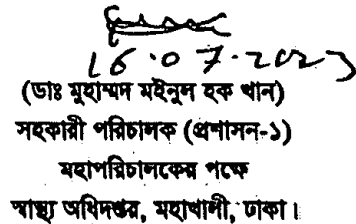 16.07.2023
(ডাঃ মুহাম্মদ মইনুল হক খান)
সহকারী পরিচালক (প্রশাসন-১)
মহাপরিচালকের পক্ষে
স্বাস্থ্য অধিদপ্তর, মহাখালী, ঢাকা।